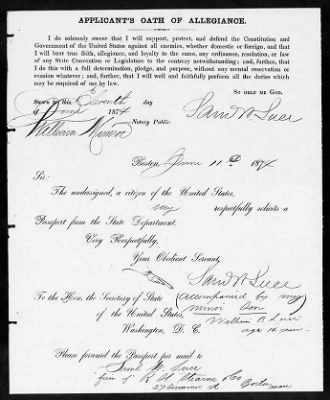 APPLICANT'S OATH OF ALLEGIANCE.
I do solemnly swear that I will support, protect, and defend the Constitution and
Government of the United States against all enemies, whether domestic or foreign, and that
I will bear true faith, allegiance, and loyalty to the same, any ordinance, resolution, or law
of any State Convention or Legislature to the contrary notwithstanding; and further, that
I do this with a full determination, pledge, and purpose, without any mental reservation or
evasion whatever; and further, that I will well and faithfully perform all the duties which
may be required of me by law.
SO HELP ME GOD.
Sworn to this Eleventh day
of June 1874
Saml W Luce
William Munroe Notary Public.
Boston June 11th 1874
Sir:
The undersigned, a citizen of the United States,
respectfully solicits a
Passport from the State Department.
Very Respectfully,
Your Obedient Servant,
Saml W Luce
To the Hon. the Secretary of State
(accompanied by my
of the United States,
minor son
William B Luce
Washington, D. C.
age 12 years
Please forward the Passport per mail to
Saml W Luce
firm of R H Stearns & Co
Boston
Mass